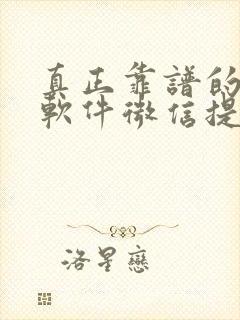 真正靠譜的
軟件微信提
洛星戀